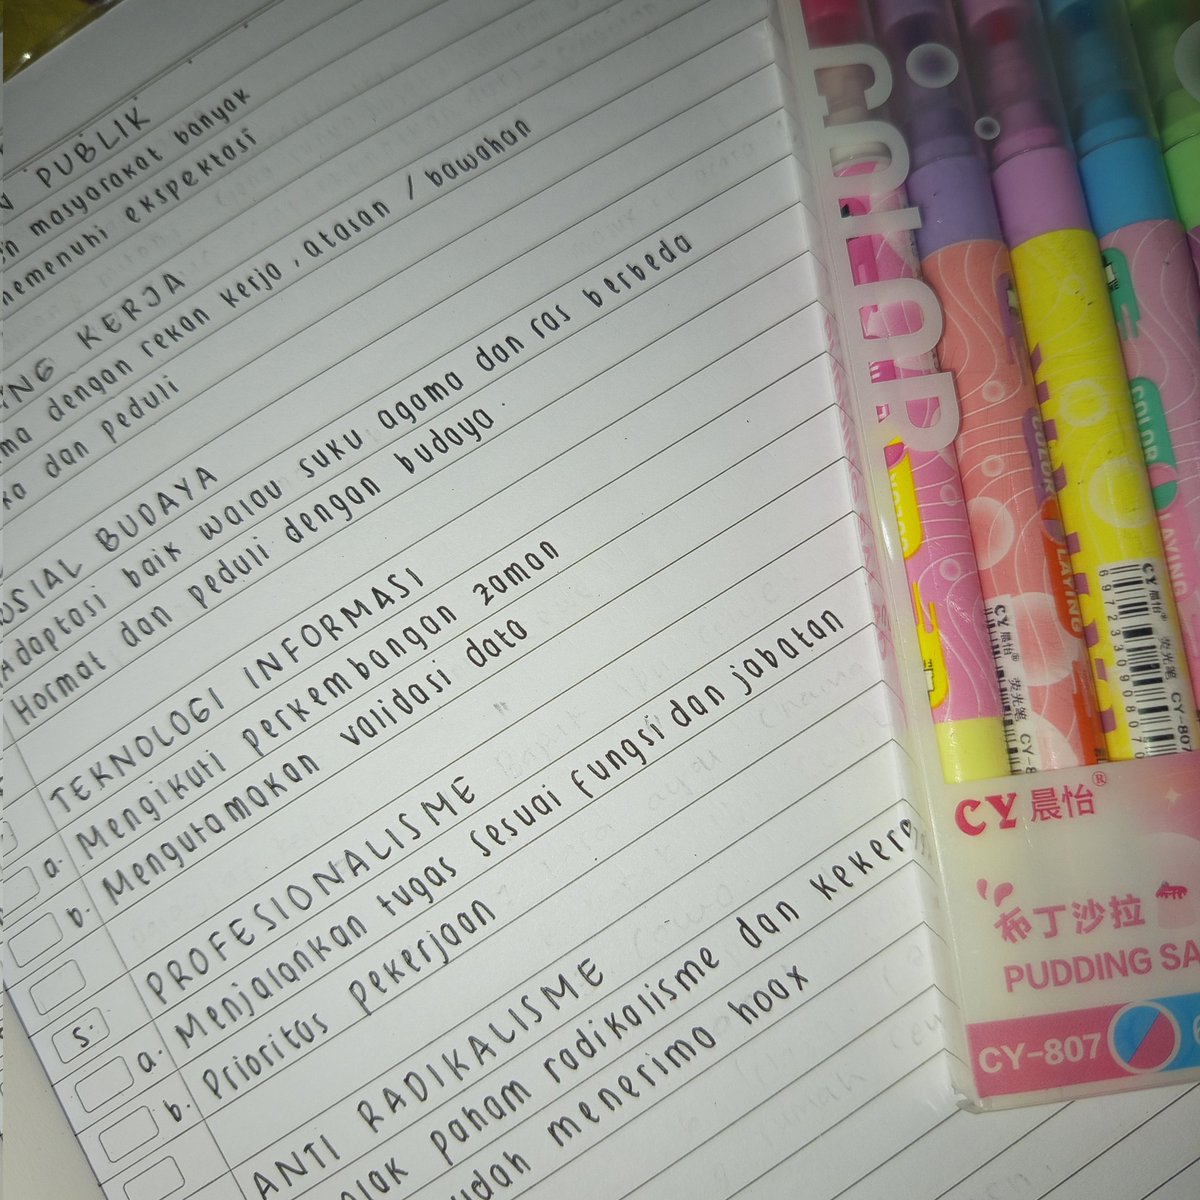 PUBLIK
masyarakat banyak
memenuhi ekspektasi
KERJA
dengan rekan kerja, atasan / bawahan
dan peduli
SOSIAL BUDAYA
Adaptasi baik walau suku agama dan ras berbeda
Hormat dan peduli dengan budaya
TEKNOLOGI INFORMASI
a. Mengikuti perkembangan zaman
b. Mengutamakan validasi data
5. PROFESIONALISME
a. Menjalankan tugas sesuai fungsi dan jabatan
b. Prioritas pekerjaan
ANTI RADIKALISME
paham radikalisme dan
menerima hoax
COLOR
COLOR
LAYING
COLOR
LAYING
CY 晨怡® 荧光笔
CY 晨怡® 荧光笔 CY-807
CY 晨怡®
布丁沙拉
PUDDING
CY-807